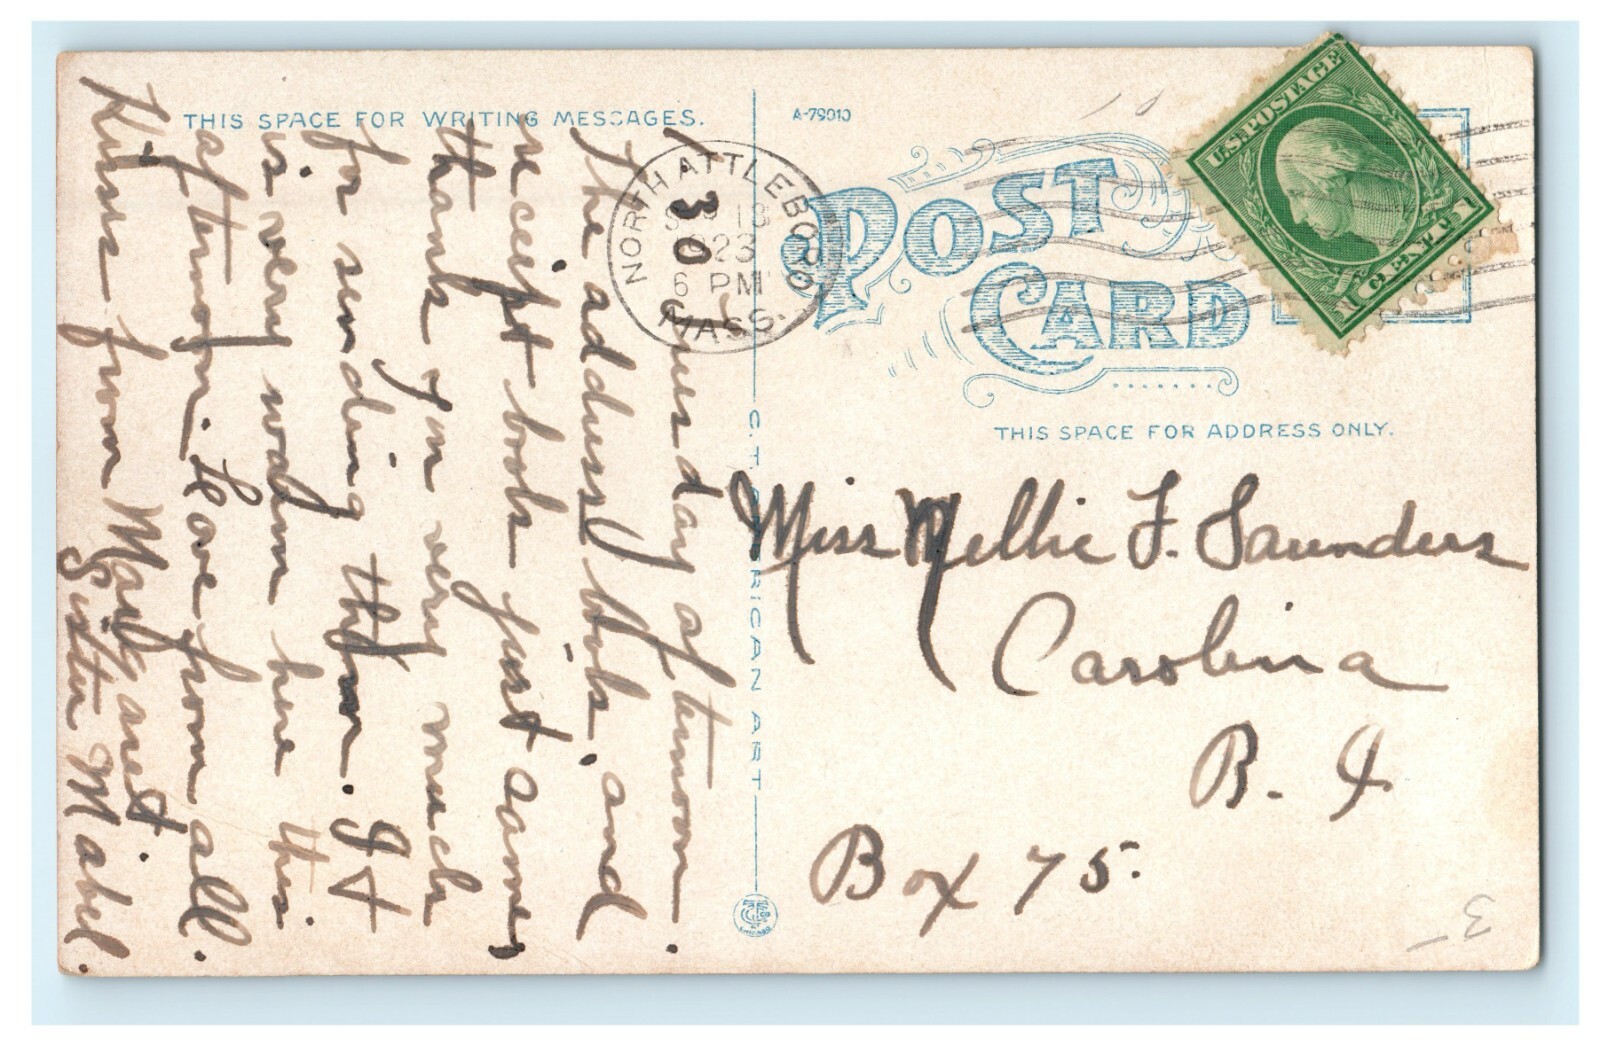 THIS SPACE FOR WRITING MESSAGES.
A-79010
POST
CARD
THIS SPACE FOR ADDRESS ONLY.
U.S. POSTAGE
1 CENT 1
NORTH ATTLEBORO
13
6 PM
MASS.
Tuesday afternoon.
The address book, and
receipt book just came,
thank you very much
for sending them. It
is very warm here this
afternoon. Love from all.
Kisses from Margaret
Sister Mabel.
Miss Nellie F. Saunders
Carolina
R. I.
Box 75.
C.T. AMERICAN ART
3